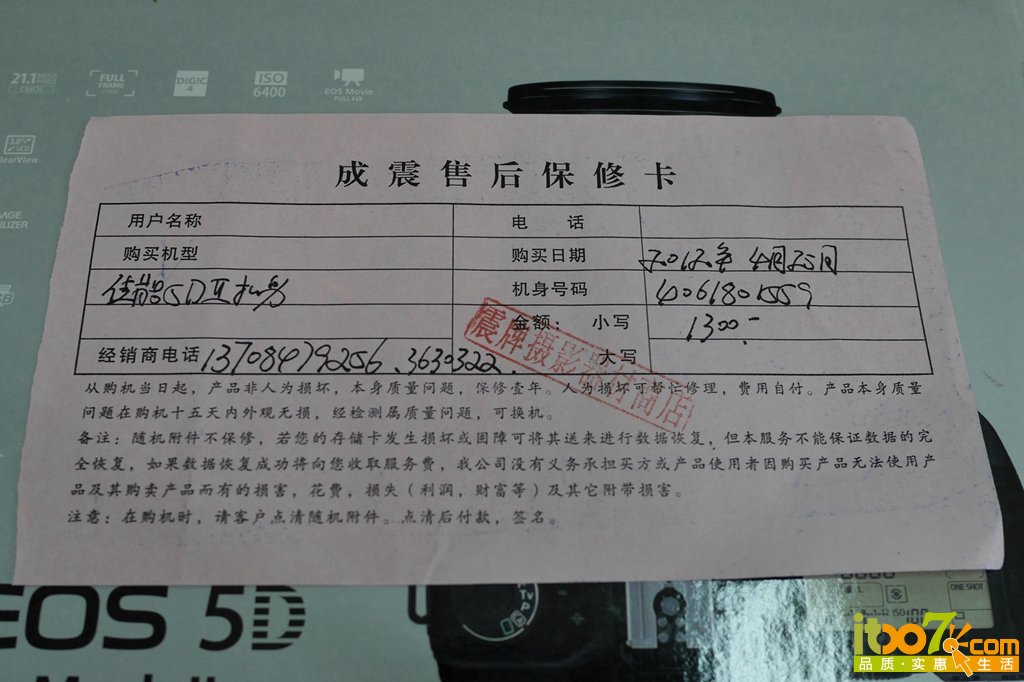 21.1 MEGA PIXELS CMOS
FULL FRAME CMOS
DIGIC 4
ISO 6400
EOS Movie FULL HD
3.0" LCD
ClearView
成震售后保修卡
用户名称 电话
购买机型 购买日期 2012年4月25日
佳能5DⅡ机身 机身号码 4061801559
金额: 小写 1300-
经销商电话 13708479256 、3630322. 大写
震牌摄影器材商店
从购机当日起,产品非人为损坏,本身质量问题,保修壹年。人为损坏可帮忙修理,费用自付。产品本身质量
问题在购机十五天内外观无损,经检测属质量问题,可换机。
备注:随机附件不保修,若您的存储卡发生损坏或固障可将其送来进行数据恢复,但本服务不能保证数据的完
全恢复,如果数据恢复成功将向您收取服务费,我公司没有义务承担买方或产品使用者因购买产品无法使用产
品及其购卖产品而有的损害,花费,损失(利润,财富等)及其它附带损害。
注意:在购机时,请客户点清随机附件。点清后付款,签名。
EOS 5D
Mark II
Tv
P
ONE SHOT
ISO 100
itbo7.com
品质·实惠 生活